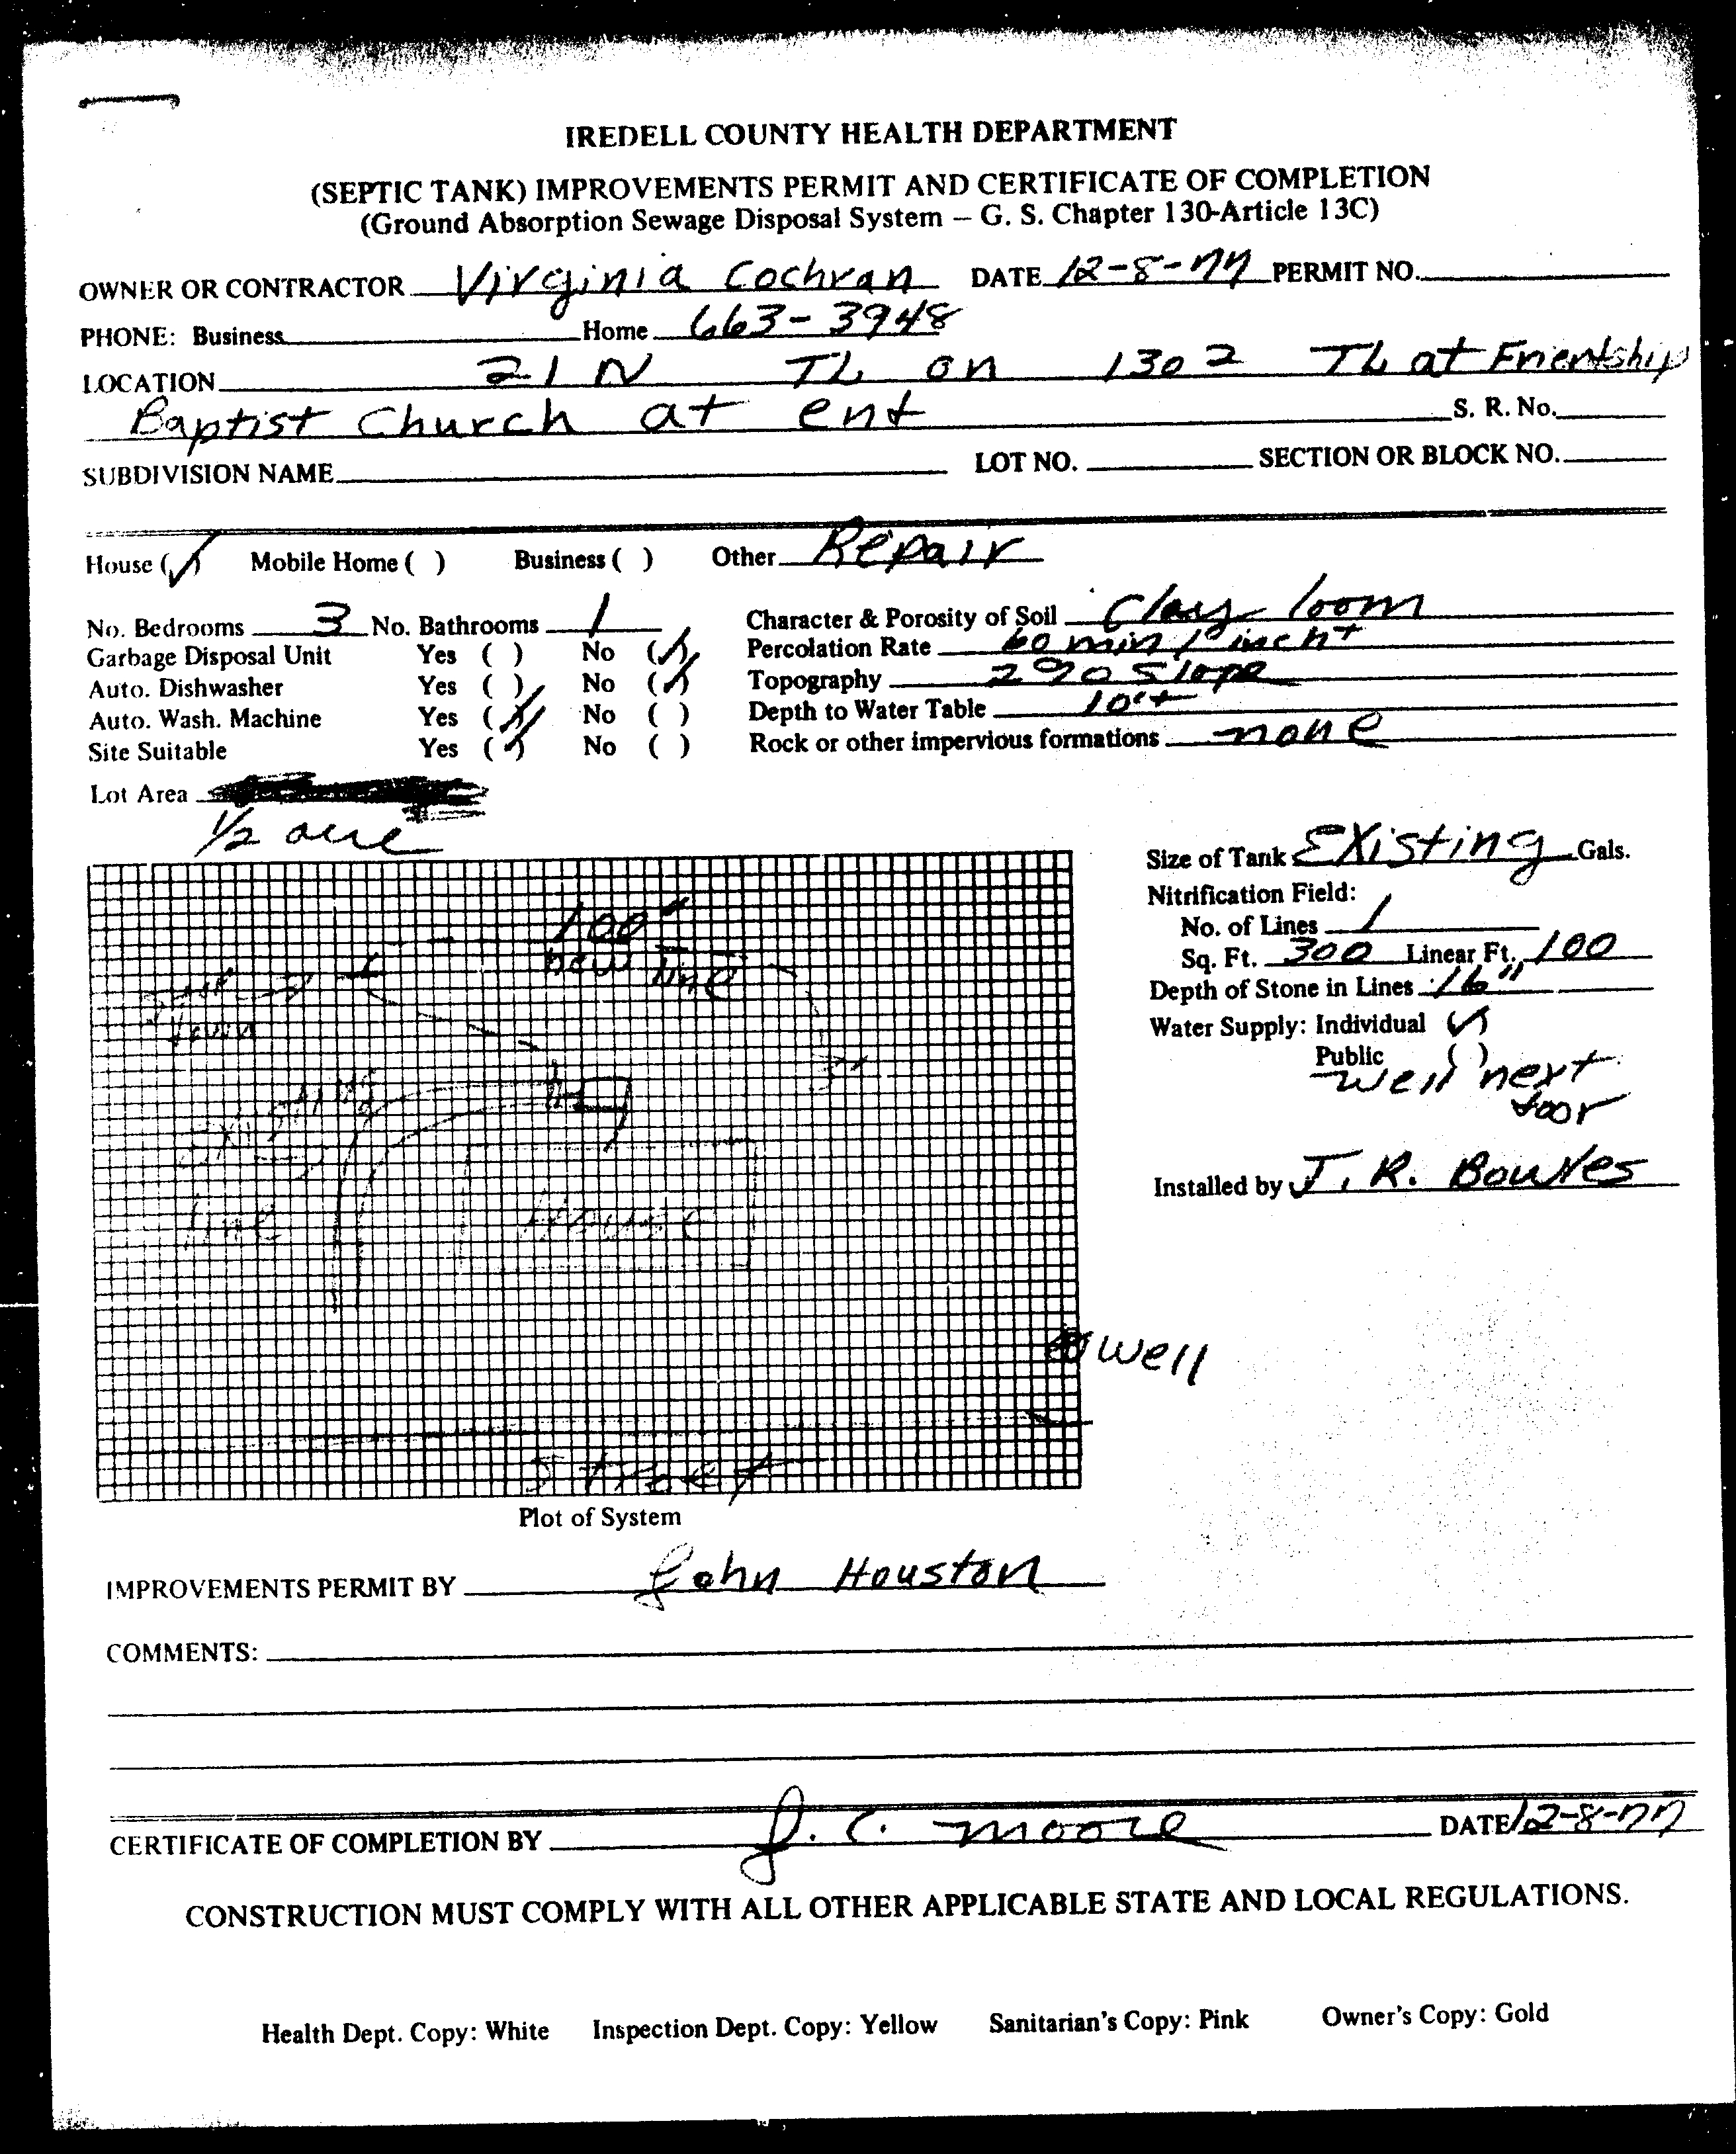 IREDELL COUNTY HEALTH DEPARTMENT
(SEPTIC TANK) IMPROVEMENTS PERMIT AND CERTIFICATE OF COMPLETION
(Ground Absorption Sewage Disposal System – G. S. Chapter 130-Article 13C)
OWNER OR CONTRACTOR Virginia Cochran DATE 12-8-77 PERMIT NO.
PHONE: Business Home 663-3948
LOCATION 21 N TL on 1302 TL at Friendship
Baptist Church at end S. R. No.
SUBDIVISION NAME LOT NO. SECTION OR BLOCK NO.
House (✓) Mobile Home ( ) Business ( ) Other Repair
No. Bedrooms 3 No. Bathrooms 1 Character & Porosity of Soil Clay loom
Garbage Disposal Unit Yes ( ) No (✓) Percolation Rate 60 min 1" inch+
Auto. Dishwasher Yes ( ) No (✓) Topography 2% Slope
Auto. Wash. Machine Yes (✓) No ( ) Depth to Water Table 10'+
Site Suitable Yes (✓) No ( ) Rock or other impervious formations none
Lot Area
1/2 acre
Size of Tank Existing Gals.
Nitrification Field:
No. of Lines 1
Sq. Ft. 300 Linear Ft. 100
Depth of Stone in Lines 16"
Water Supply: Individual (✓)
Public ( )
Well next
door
Installed by J. R. Bowles
100'
new line
Down
Existing
line
House
Well
Street
Plot of System
IMPROVEMENTS PERMIT BY John Houston
COMMENTS:
CERTIFICATE OF COMPLETION BY J. C. Moore DATE 12-8-77
CONSTRUCTION MUST COMPLY WITH ALL OTHER APPLICABLE STATE AND LOCAL REGULATIONS.
Health Dept. Copy: White Inspection Dept. Copy: Yellow Sanitarian's Copy: Pink Owner's Copy: Gold